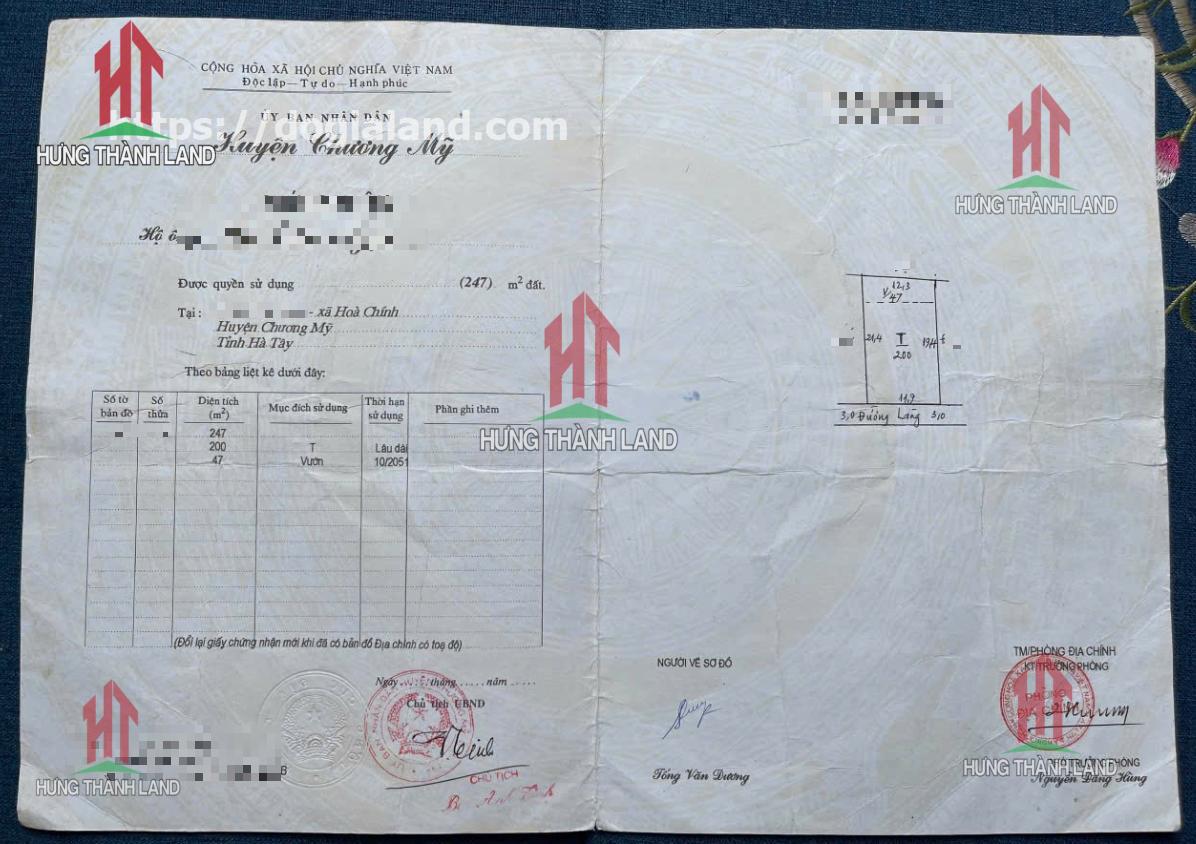 CỘNG HÒA XÃ HỘI CHỦ NGHĨA VIỆT NAM
Độc lập — Tự do — Hạnh phúc
ỦY BAN NHÂN DÂN
https://donialand.com
Huyện Chương Mỹ
HT
HƯNG THÀNH LAND
HT
HƯNG THÀNH LAND
Hộ ô
Được quyền sử dụng (247) m² đất.
Tại : - xã Hoà Chính
Huyện Chương Mỹ
Tỉnh Hà Tây
Theo bảng liệt kê dưới đây:
Số tờ bản đồ Số thửa Diện tích (m²) Mục đích sử dụng Thời hạn sử dụng Phần ghi thêm
247
200 T Lâu dài
47 Vườn 10/2051
HT
HƯNG THÀNH LAND
12,3
V/47
21,4 T 19,4
200
11,9
3,0 Đường Làng 3,0
(Đổi lại giấy chứng nhận mới khi đã có bản đồ Địa chính có toạ độ)
Ngày tháng năm
Chủ tịch UBND
CHỦ TỊCH
HT
HƯNG THÀNH LAND
NGƯỜI VẼ SƠ ĐỒ
Tống Văn Dương
TM/PHÒNG ĐỊA CHÍNH
KT/TRƯỞNG PHÒNG
PHÒNG
ĐỊA CHÍNH
HT
HƯNG THÀNH LAND
PHÓ TRƯỞNG PHÒNG
Nguyễn Đăng Hùng